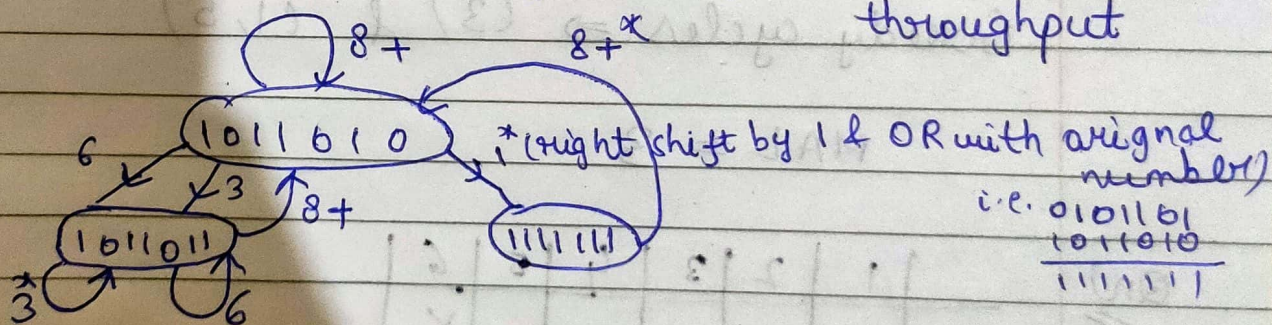 throughput
8+
8+*
1011010
* (right shift by 1 & OR with orignal number)
6
3
8+
1
i.e. 0101101
1011010
1111111
1011011
1111111
*3
6